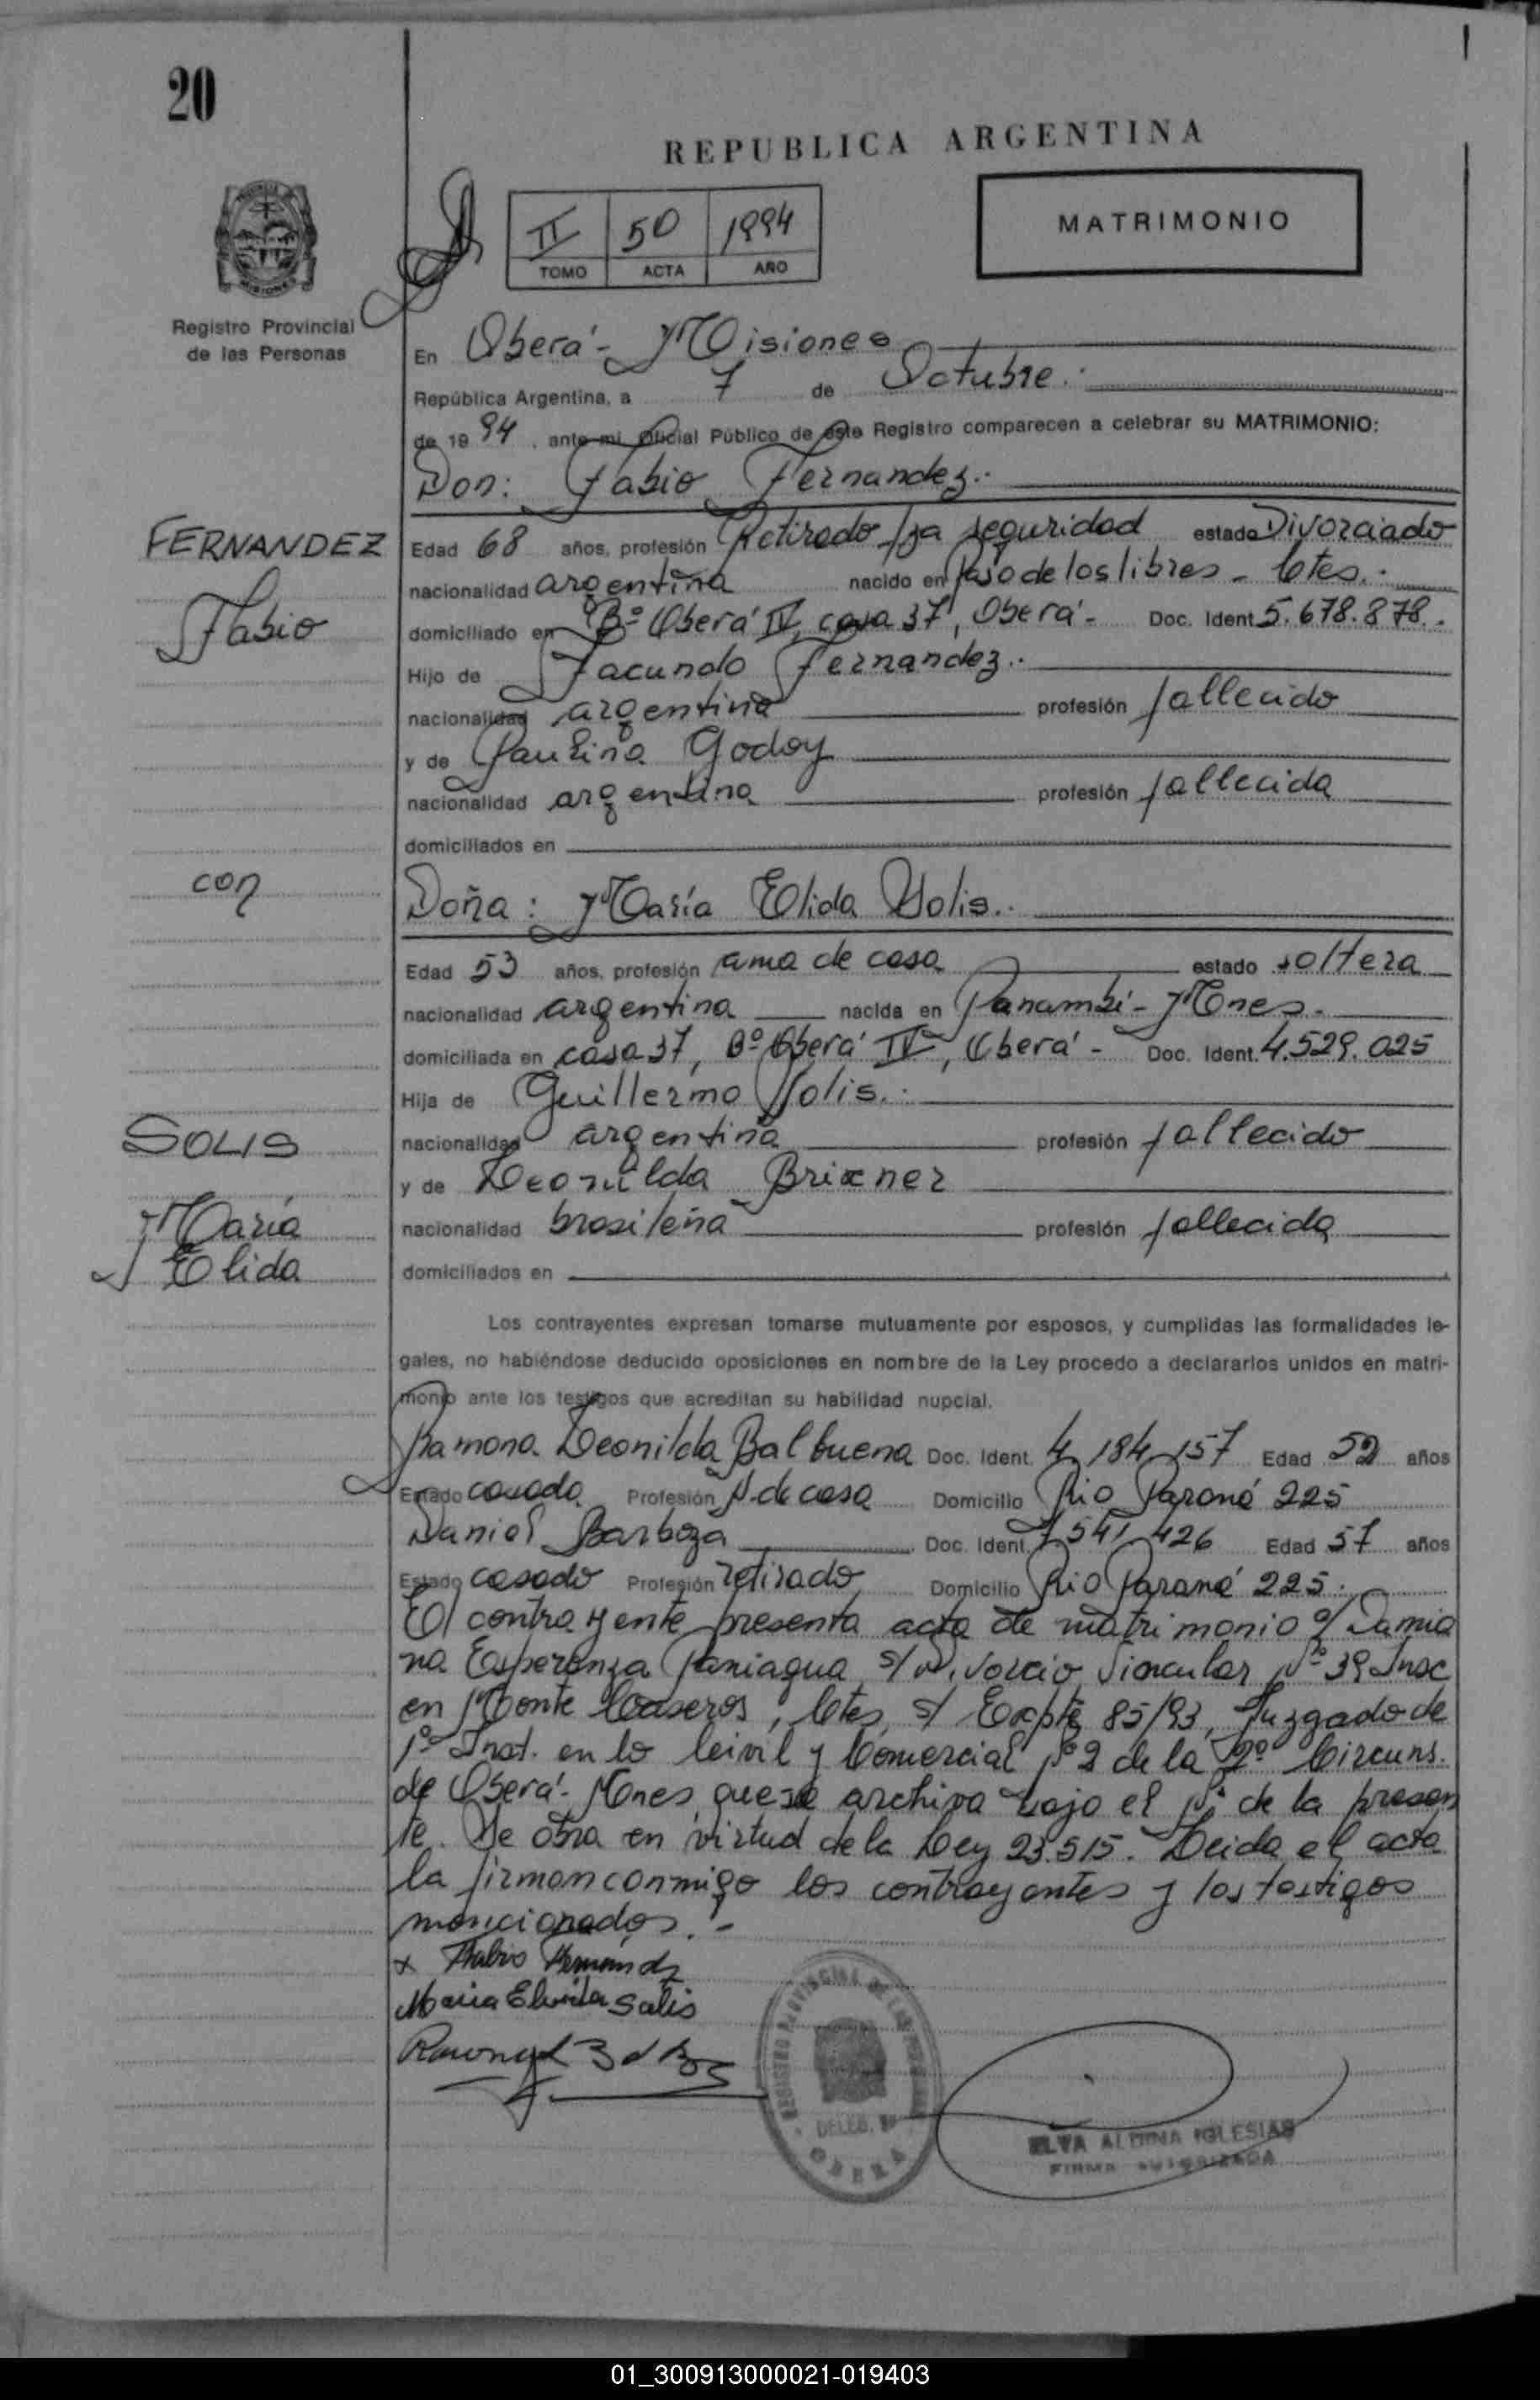 20
REPUBLICA ARGENTINA
II 50 1994
TOMO ACTA AÑO
MATRIMONIO
Registro Provincial
de las Personas
En Oberá - Misiones
República Argentina, a 7 de Octubre.-
de 1994, ante mi, Oficial Público de este Registro comparecen a celebrar su MATRIMONIO:
Don: Fabio Fernandez.-
FERNANDEZ
Fabio
Edad 68 años, profesión Retirado fza seguridad estado Divorciado
nacionalidad argentina nacido en Paso de los libres - Ctes.-
domiciliado en Bº Oberá IV, casa 37, Oberá - Doc. Ident. 5.678.878.
Hijo de Facundo Fernandez.-
nacionalidad argentina profesión fallecido
y de Paulina Godoy
nacionalidad argentina profesión fallecida
domiciliados en
con
Doña: María Elida Solis.-
Edad 53 años, profesión ama de casa estado soltera
nacionalidad argentina nacida en Panambí - Mnes.
domiciliada en casa 37, Bº Oberá IV, Oberá - Doc. Ident. 4.529.025
Hija de Guillermo Solis.-
SOLIS
María
Elida
nacionalidad argentina profesión fallecido
y de Deonilda Brixner
nacionalidad brasileña profesión fallecida
domiciliados en
Los contrayentes expresan tomarse mutuamente por esposos, y cumplidas las formalidades le-
gales, no habiéndose deducido oposiciones en nombre de la Ley procedo a declararlos unidos en matri-
monio ante los testigos que acreditan su habilidad nupcial.
Ramona Deonilda Balbuena Doc. Ident. 4.184.157 Edad 52 años
Estado casada Profesión A. de casa Domicilio Rio Paraná 225
Daniel Barboza Doc. Ident. 7.541.426 Edad 57 años
Estado casado Profesión retirado Domicilio Rio Paraná 225.
El contrayente presenta acta de matrimonio c/ Damia
na Esperanza Paniagua s/ Divorcio Vincular, Nº 39 Insc
en Monte Caseros, Ctes, s/ Expte 85/93, Juzgado de
1º Inst. en lo Civil y Comercial Nº 2 de la 2º Circuns.
de Oberá - Mnes, que se archiva bajo el Nº de la presen
te. Se obra en virtud de la Ley 23.515. Leida el acta
la firman conmigo los contrayentes y los testigos
mencionados.-
x Fabio Fernandz
Maria Elida Solis
REGISTRO PROVINCIAL DE LAS PERSONAS
DELEG.
OBERA
ELVA ALBINA IGLESIAS
FIRMA AUTORIZADA
01_300913000021-019403